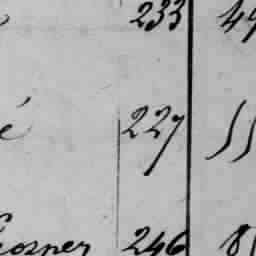 233 49
é 227 55
osper 246 8